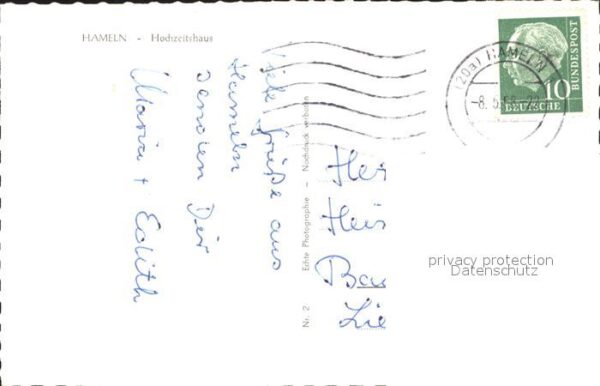 HAMELN - Hochzeitshaus
Viele Grüße aus
Hameln
senden Dir
Maria + Edith
Nr. 2 Echte Photographie - Nachdruck verboten
(20a) HAMELN
-8. 5. 58
10
DEUTSCHE
BUNDESPOST
Her
Hei
Bau
Lie
privacy protection
Datenschutz